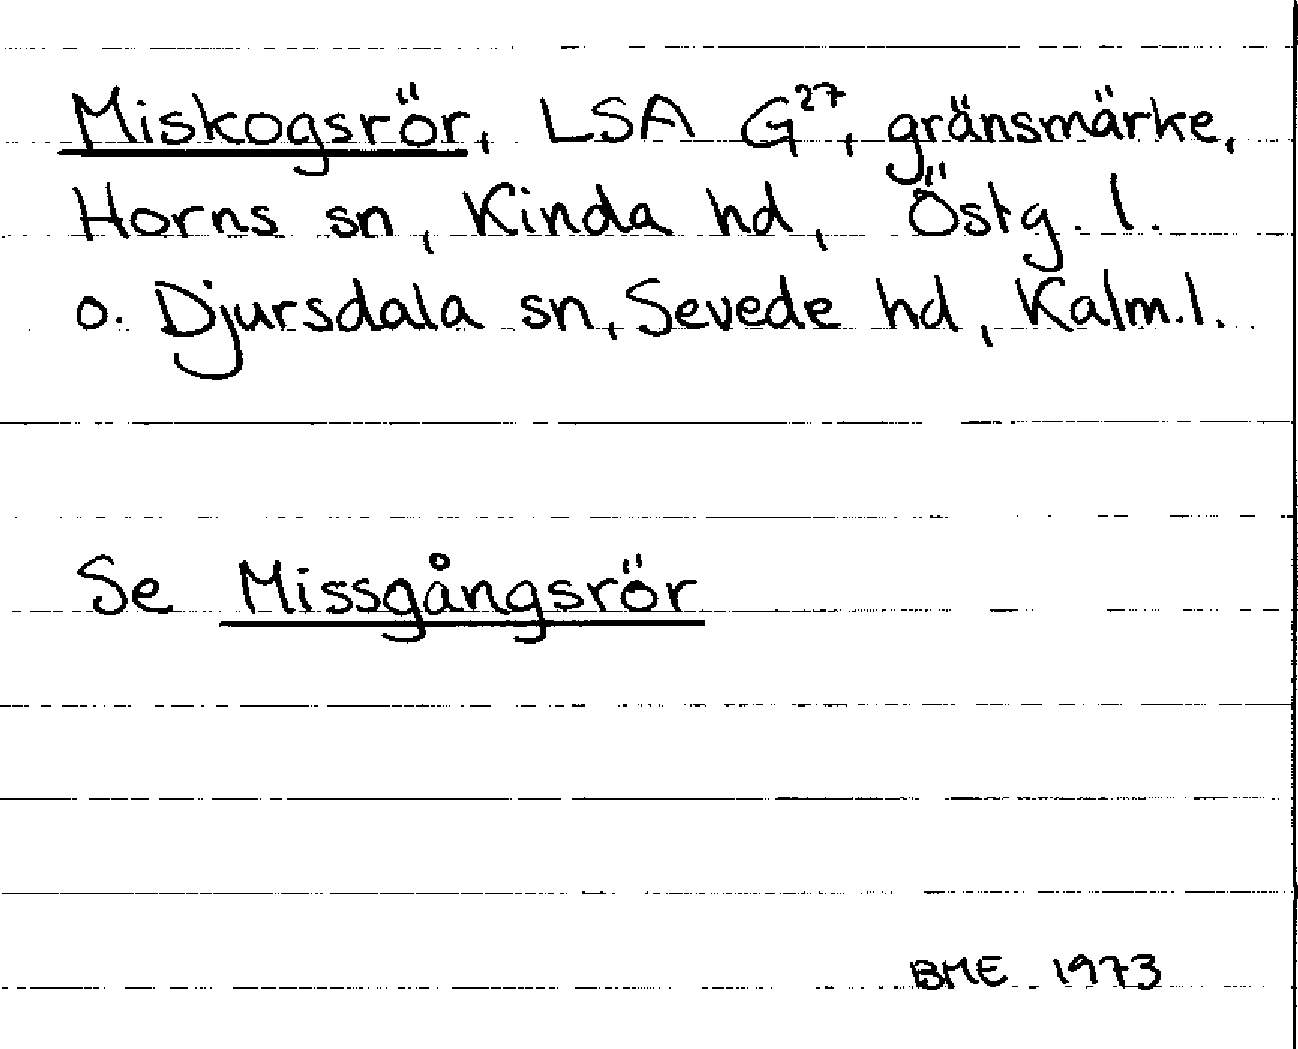 Miskogsrör, LSA G27, gränsmärke,
Horns sn, Kinda hd, Östg. l.
o. Djursdala sn, Sevede hd, Kalm. l.
Se Missgångsrör
BME 1973